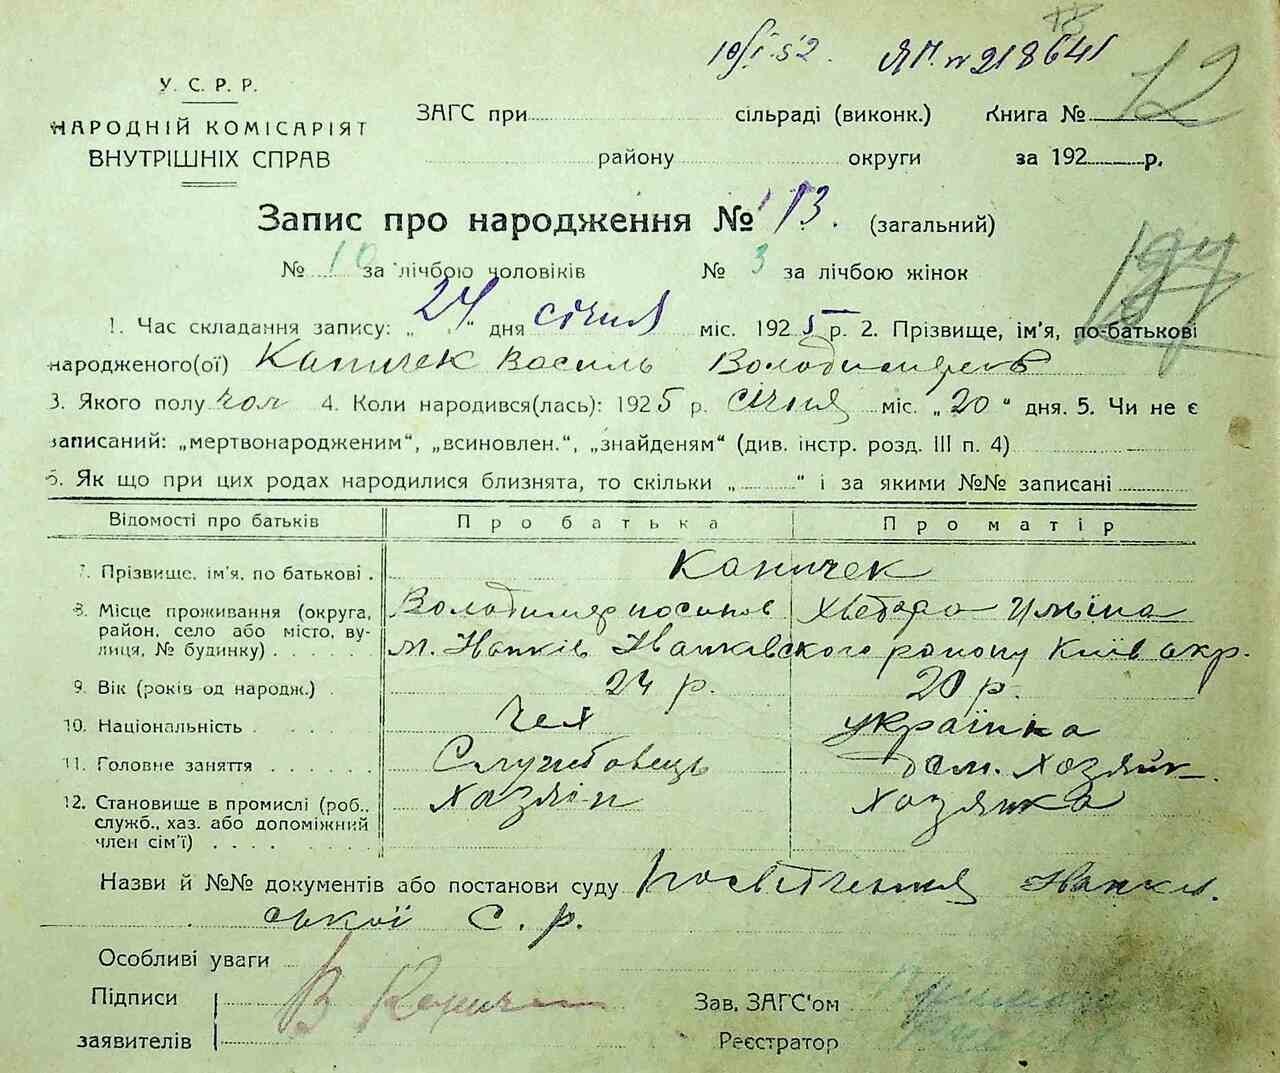 19/I-52. ЯП. № 218641
12
У. С. Р. Р.
НАРОДНІЙ КОМІСАРІЯТ
ВНУТРІШНІХ СПРАВ
ЗАГС при сільраді (виконк.) Книга №
району округи за 192 р.
Запис про народження № 13. (загальний)
№ 10 за лічбою чоловіків № 3 за лічбою жінок
1. Час складання запису: „24“ дня січня міс. 1925 р. 2. Прізвище, ім'я, по-батькові
народженого(ої) Каничек Василь
3. Якого полу чол 4. Коли народився(лась): 1925 р. січня міс. „20“ дня. 5. Чи не є
записаний: „мертвонародженим“, „всиновлен.“, „знайденям“ (див. інстр. розд. III п. 4)
6. Як що при цих родах народилися близнята, то скільки „ “ і за якими №№ записані
Відомості про батьків Про батька Про матір
7. Прізвище, ім'я, по батькові . Каничек
8. Місце проживання (округа, Володимир Хведора
район, село або місто, ву-
лиця, № будинку) . . . . . . м. району Київ окр.
9. Вік (років од народж.) . 24 р. 20 р.
10. Національність . Чех українка
11. Головне заняття . . . . . . Службовець дом. хозяйк.
12. Становище в промислі (роб., хазяін хозяйка
служб., хаз. або допоміжний
член сім'ї) . . . . . .
Назви й №№ документів або постанови суду Посвітчення
ської С. р.
Особливі уваги
Підписи В Каничек Зав. ЗАГС'ом
заявителів Реєстратор